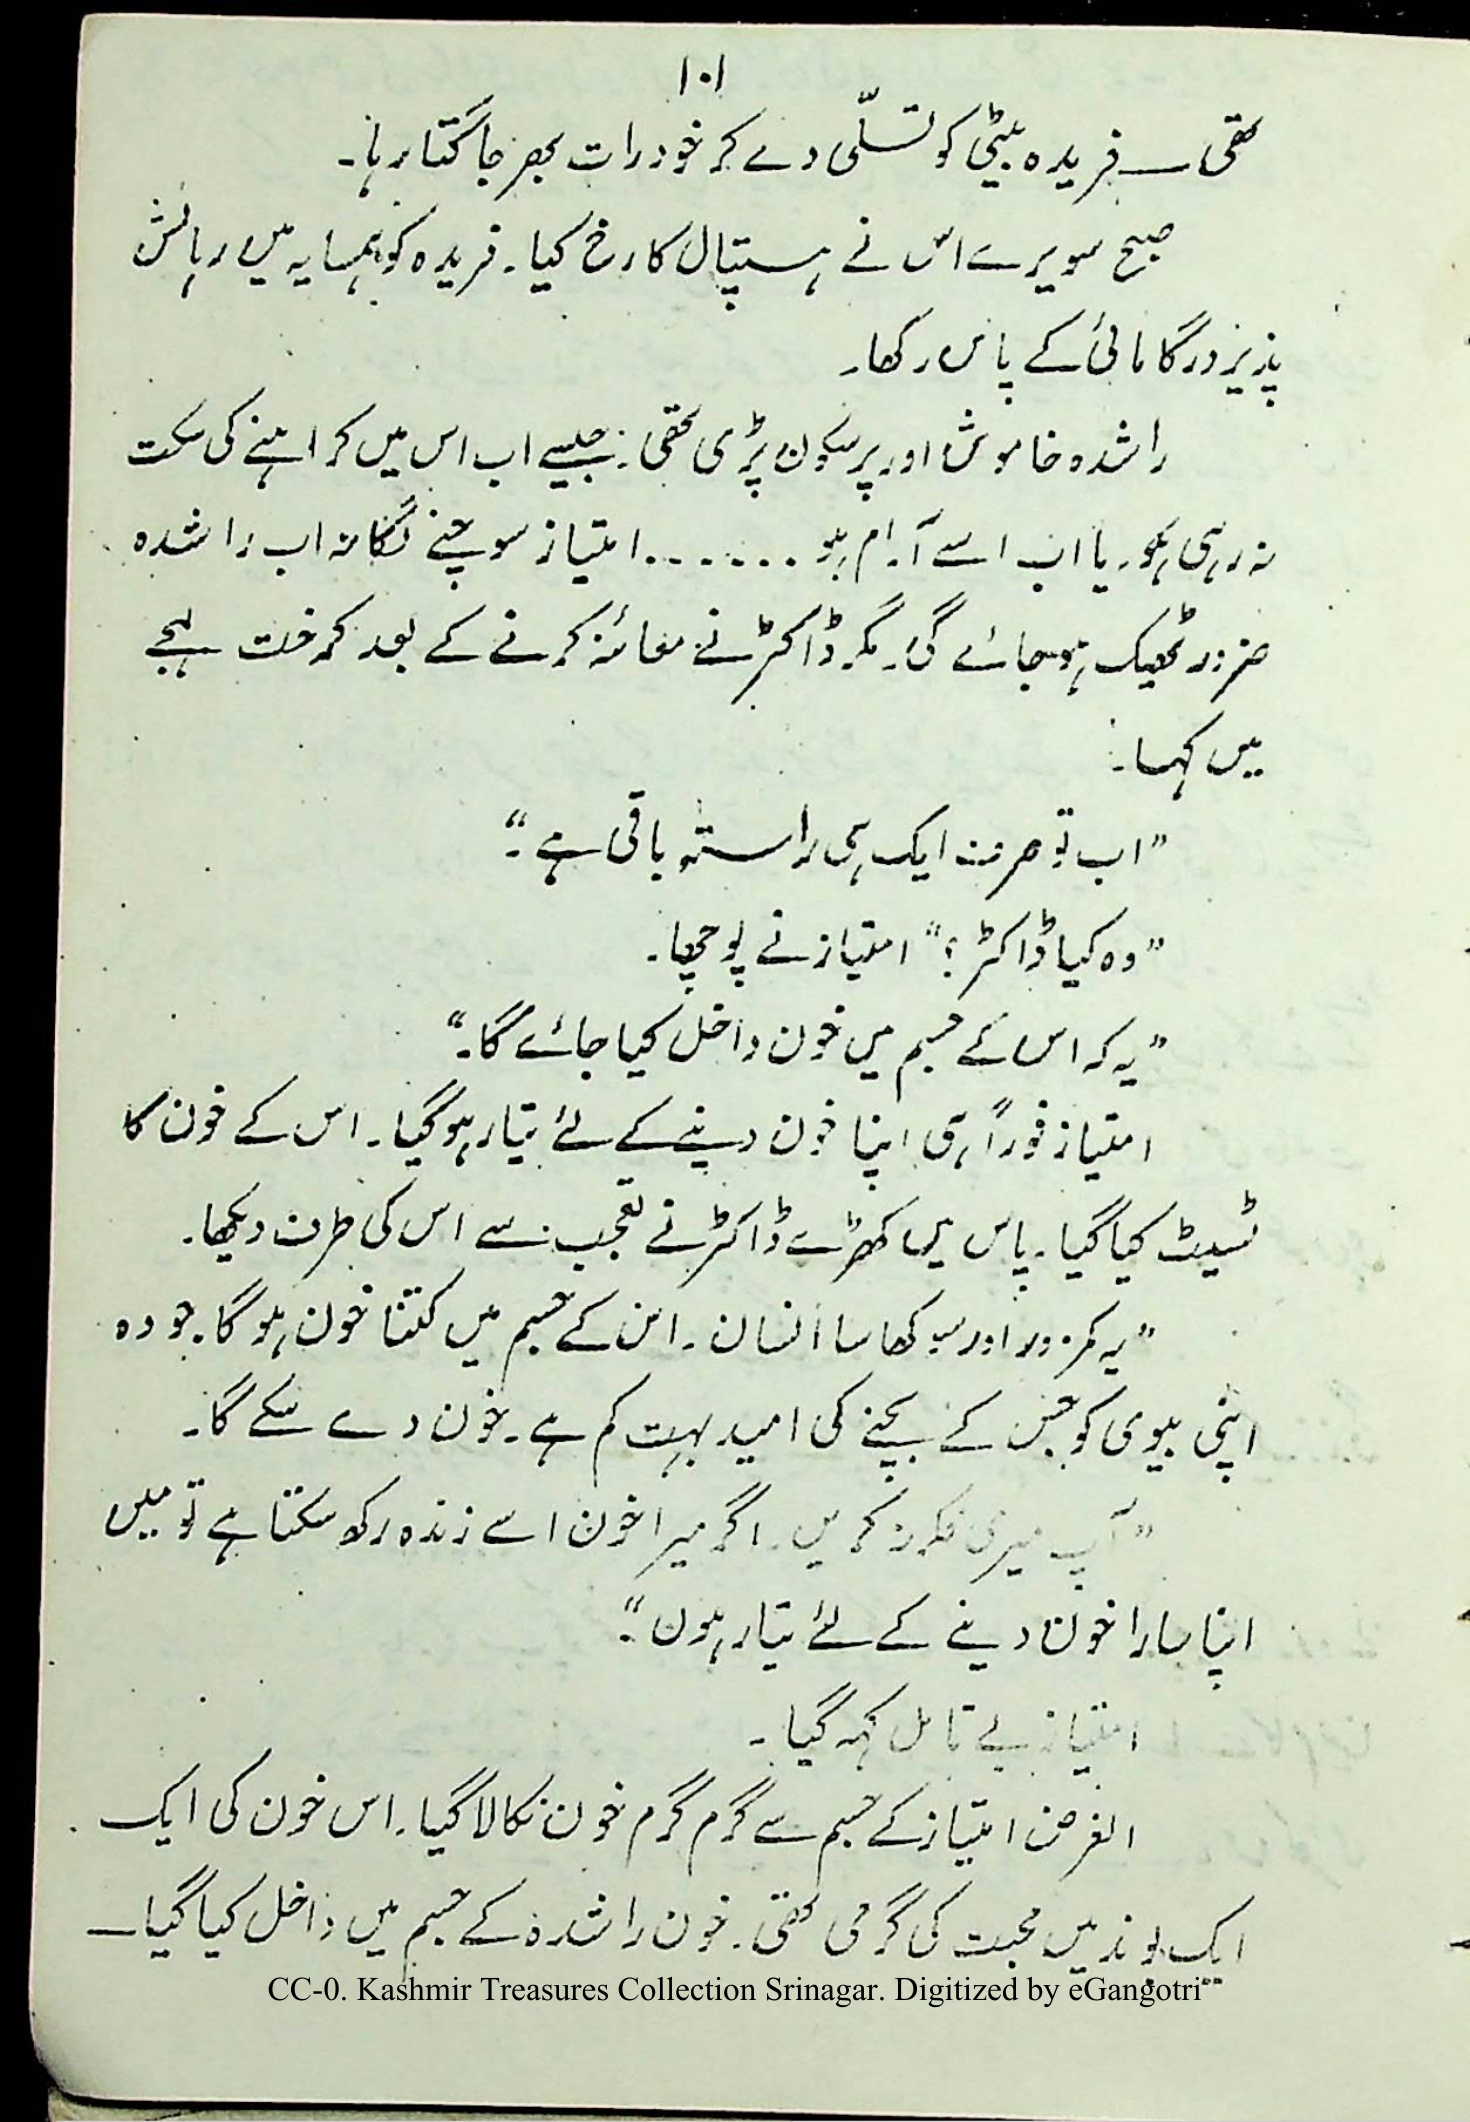 ۱۰۱
تھی ــ فریدہ بیٹی کو تسلّی دے کر خود رات بھر جاگتا رہا۔
صبح سویرے اس نے ہسپتال کا رخ کیا۔ فریدہ کو ہمسایہ میں رہائش
پذیر درگا مائی کے پاس رکھا۔
راشدہ خاموش اور پرسکون پڑی تھی۔ جیسے اب اس میں کراہنے کی سکت
نہ رہی ہو۔ یا اب اسے آرام ہو ۔۔۔۔۔۔۔ امتیاز سوچنے لگا نہ اب راشدہ
ضرور ٹھیک ہو جائے گی۔ مگر ڈاکٹر نے معائنہ کرنے کے بعد کرخت لہجے
میں کہا۔
”اب تو صرف ایک ہی راستہ باقی ہے۔“
”وہ کیا ڈاکٹر؟“ امتیاز نے پوچھا۔
”یہ کہ اس کے جسم میں خون داخل کیا جائے گا۔“
امتیاز فوراً ہی اپنا خون دینے کے لئے تیار ہو گیا۔ اس کے خون کا
ٹسیٹ کیا گیا۔ پاس ہیں کھڑے ڈاکٹر نے تعجب سے اس کی طرف دیکھا۔
”یہ کمزور اور سوکھا سا انسان۔ اس کے جسم میں کتنا خون ہو گا۔ جو وہ
اپنی بیوی کو جس کے بچنے کی امید بہت کم ہے۔ خون دے سکے گا۔
”آپ میری فکر نہ کریں۔ اگر میرا خون اسے زندہ رکھ سکتا ہے تو میں
اپنا سارا خون دینے کے لئے تیار ہوں۔“
امتیاز بے تامل کہہ گیا۔
الغرض امتیاز کے جسم سے گرم گرم خون نکالا گیا۔ اس خون کی ایک
ایک بوند میں محبت کی گرمی تھی۔ خون راشدہ کے جسم میں داخل کیا گیا ــ
CC-0. Kashmir Treasures Collection Srinagar. Digitized by eGangotri